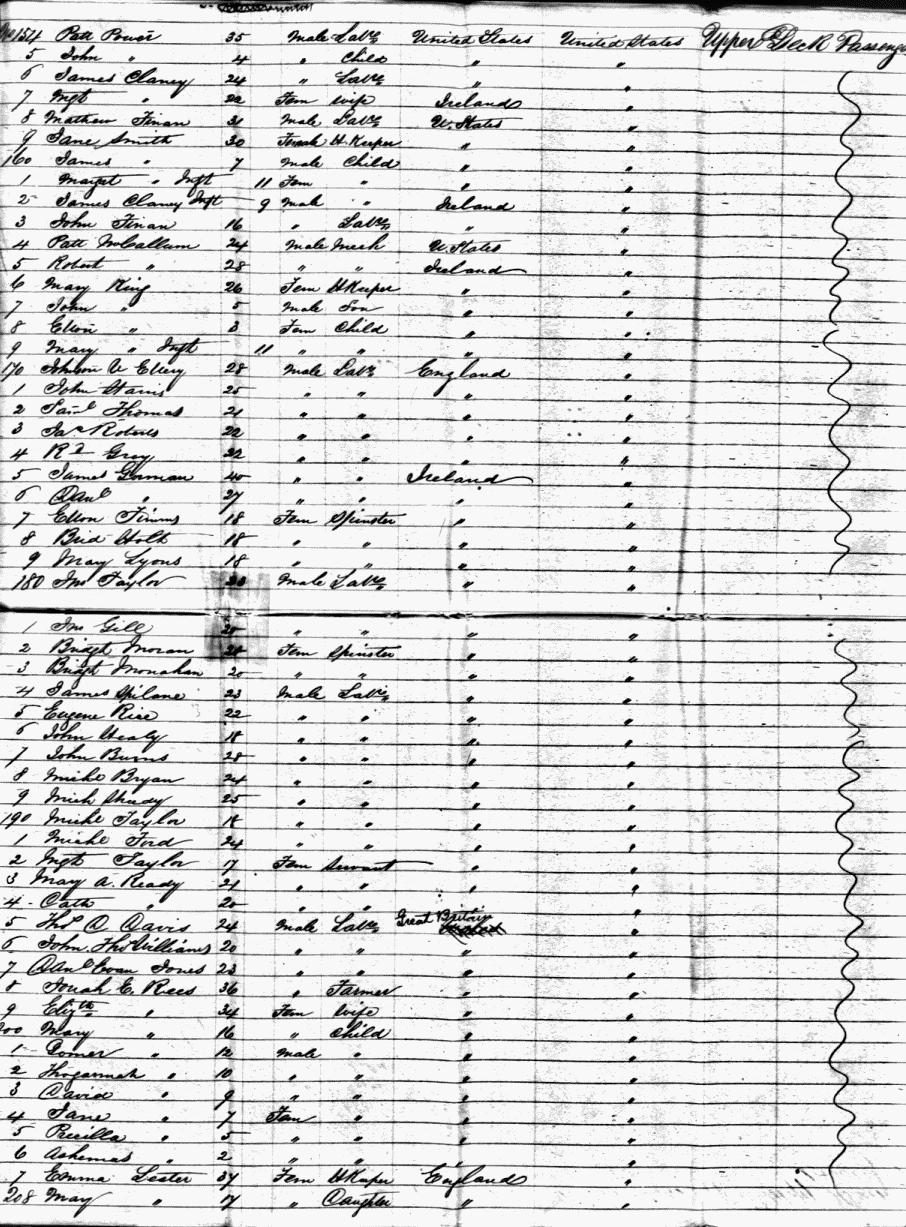 No 154 Patt Power 35 Male Labr United States United States Upper Deck Passenge
5 John " 4 " Child " "
6 James Clancy 24 " Labr " "
7 Mgt " 22 Fem Wife Ireland "
8 Mathew Finan 31 Male Labr U. States "
9 Jane Smith 30 Female H. Keeper " "
160 James " 7 Male Child " "
1 Margt " Inft 11 Fem " " "
2 James Clancy Inft 9 Male " Ireland "
3 John Finan 16 " Labr " "
4 Patt McCallum 24 Male Mech U. States "
5 Robert " 28 " " Ireland "
6 Mary King 26 Fem H Keeper " "
7 John " 5 Male Son " "
8 Ellen " 3 Fem Child " "
9 Mary " Inft 11 " " " "
170 28 Male Labr England "
1 John 25 " " " "
2 Saml Thomas 21 " " " "
3 Jas Roberts 22 " " " "
4 Rd Grey 22 " " " "
5 James Gorman 40 " " Ireland "
6 Danl " 27 " " " "
7 Ellen Timms 18 Fem Spinster " "
8 Brid Holt 18 " " " "
9 Mary Lyons 18 " " " "
180 Jno Taylor Male Labr " "
1 Jno Gill " " " "
2 Bridgt Moran Fem Spinster " "
3 Bridgt Monahan 20 " " " "
4 James Spilane 23 Male Labr " "
5 Eugene Rice 22 " " " "
6 John Healy 18 " " " "
7 John Burns 28 " " " "
8 Michl Bryan 24 " " " "
9 Mich 25 " " " "
190 Michl Taylor 18 " " " "
1 Michl Ford 24 " " " "
2 Mgt Taylor 17 Fem Servant " "
3 Mary A. Ready 21 " " " "
4 Cath " 20 " " " "
5 Thos D Davis 24 Male Labr Great Britain "
6 John Thos Williams 20 " " " "
7 Danl Evan Jones 23 " " " "
8 Jonah E. Rees 36 " Farmer " "
9 Elizth " 34 Fem Wife " "
200 Mary " 16 " Child " "
1 Gomer " 12 Male " " "
2 " 10 " " " "
3 David " 9 " " " "
4 Jane " 7 Fem " " "
5 " 5 " " " "
6 " 2 " " " "
7 Emma Lester 37 Fem H Keeper England "
208 May " 17 " Daughter " "